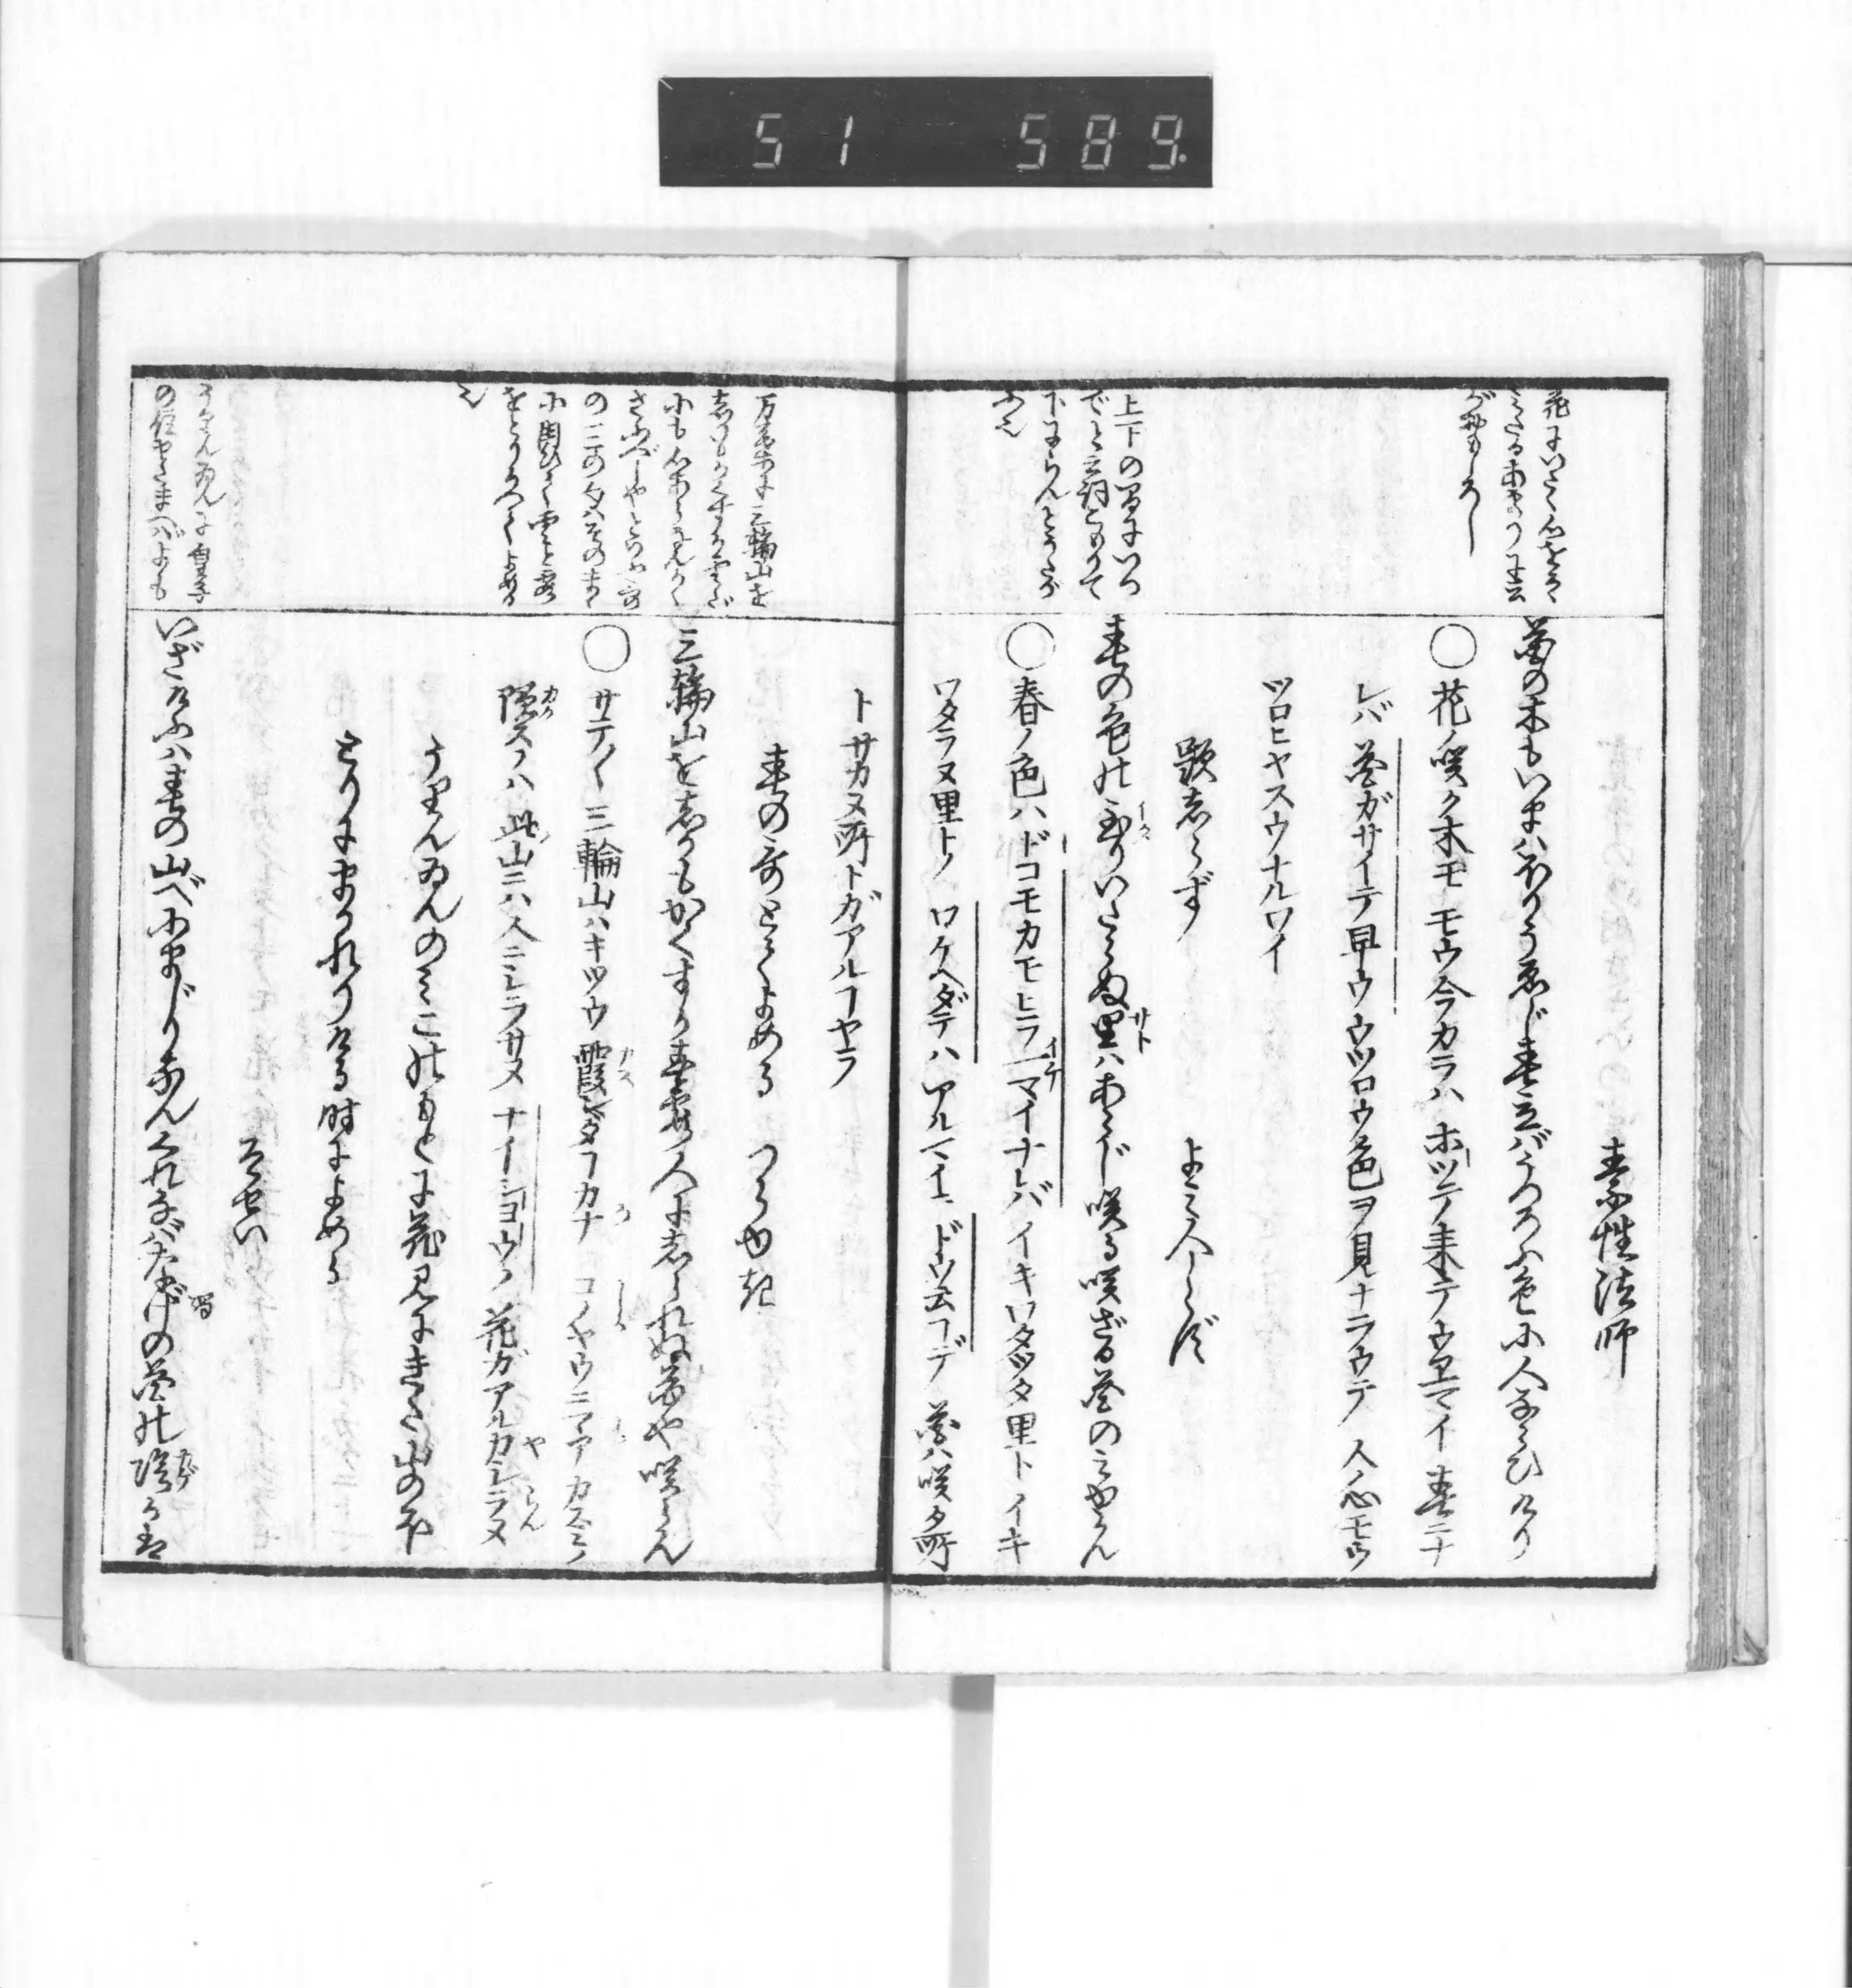 51 589.
素性法師
花の木もいまはほりうゑじ春立バうつろふ色に人ならひけり
○花ノ咲ク木モ モウ今カラハ ホツテノ来テウヱマイ 春ニナ
レバ 花ガサイテ早ウ ウツロウ色ヲ見ナラウテ 人ノ心モウ
ツロヒヤスウナルワイ
題しらず よみ人しらず
春の色のいたりいたらぬ里ハあらじ咲る咲ざる花のみゆらん
○春ノ色ハ ドコモカモヒラ一マイナレバ イキワタツタ里ト イキ
ワタラヌ里トノ ワケヘダテハ アルマイニ ドウ云コデ 花ハ咲タ所
トサカヌ所トガアルコヤラ
春の哥とてよめる つらゆき
三輪山をしかもかくすか春霞人にしられぬ花や咲らん
○サテ〳〵三輪山ハキツウ 霞ンダコカナ コノヤウニマア カスミノ
隠スノハ 此山ニハ人ニシラサヌ ナイシヨウノ 花ガアルカシラヌ
うりんゐんのみこのもとに花見にきた山のほ
とりにまかれりける時によめる
そせい
いざけふハ春の山べにまじりなんくれなバなげの花の陰かは
花にいたく心をそへ
上下の間にいつ
下にらんとうたが
万葉に三輪山を
しかもかくすか雲だ
にも心あらなんかく
さふべしやとある哥
の二の句ハそのまゝ
に用ひて雲を霞
をとりかへてよめる
也
うりんゐんに皇子
の住せたまへバよも